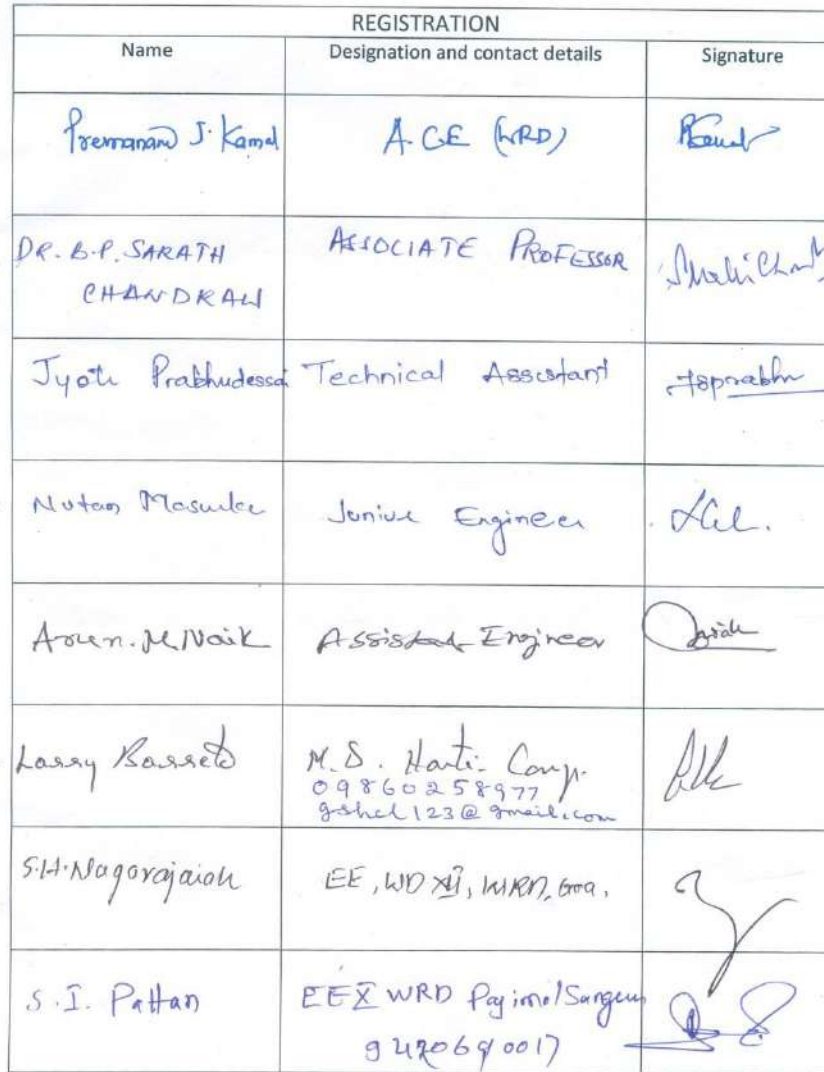 REGISTRATION
Name Designation and contact details Signature
Premanand J. Kamat A.CE (WRD)
DR. B.P. SARATH ASSOCIATE PROFESSOR
CHANDRAN
Jyoti Prabhudessai Technical Assistant
Nutan Junior Engineer
Arun. M. Naik Assistant Engineer
Larry Barreto M.D. Horti. Corp.
09860258977
gshcl123@gmail.com
S.H. Nagarajaiah EE, WD XII, WRD, Goa.
S. I. Pattan EE X WRD